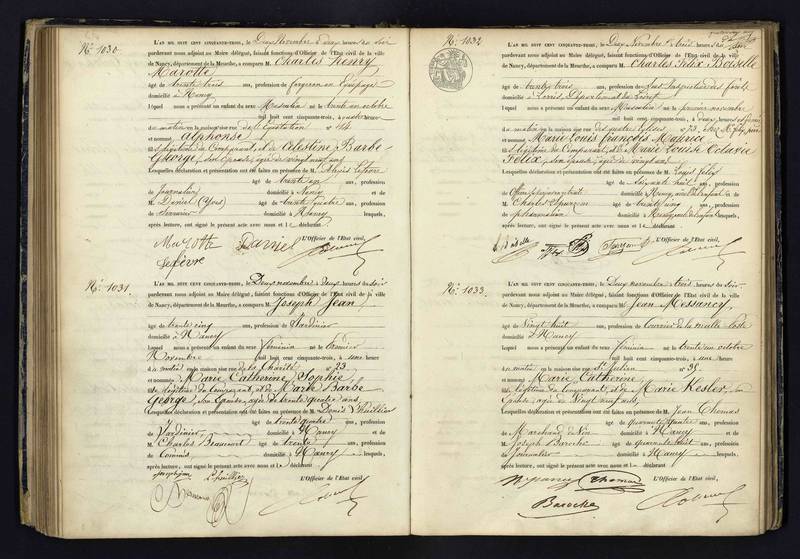 N° 1030
L'AN MIL HUIT CENT CINQUANTE-TROIS, le Deux Novembre à deux heures du soir
pardevant nous adjoint au Maire délégué, faisant fonctions d'Officier de l'Etat civil de la ville
de Nancy, département de la Meurthe, a comparu M. Charles Henry
Marotte
âgé de trente trois ans, profession de forgeron en Equipage
domicilié à Nancy
lequel nous a présenté un enfant du sexe Masculin né le trente un octobre
mil huit cent cinquante-trois, à heures
du matin en la maison sise rue de l'Equitation n° 14
et nommé Alphonse
fils légitime du Comparant, et de Célestine Barbe
George, son épouse, âgée de vingt neuf ans
Lesquelles déclaration et présentation ont été faites en présence de M. Alexis Lefevre
âgé de trente un ans, profession
de Journalier domicilié à Nancy et
M. Daniel (Yves) âgé de trente quatre ans, profession
de Serrurier domicilié à Nancy lesquels,
après lecture, ont signé le présent acte avec nous et le déclarant
L'Officier de l'Etat civil,
Marotte Daniel
Lefèvre
N° 1031
L'AN MIL HUIT CENT CINQUANTE-TROIS, le Deux novembre à deux heures du soir
pardevant nous adjoint au Maire délégué, faisant fonctions d'Officier de l'Etat civil de la ville
de Nancy, département de la Meurthe, a comparu M. Joseph Jean
âgé de trente cinq ans, profession de Jardinier
domicilié à Nancy
Lequel nous a présenté un enfant du sexe féminin né le premier
Novembre mil huit cent cinquante-trois, à une heure
du matin en la maison sise rue de la Charité n° 23
et nommé Marie Catherine Sophie
fille légitime du Comparant, et de Marie Barbe
George, son Epouse, âgée de trente quatre ans,
Lesquelles déclaration et présentation ont été faites en présence de M. Denis Lhuillier
âgé de trente quatre ans, profession
de Jardinier domicilié à Nancy et
M. Charles Beaucourt âgé de trente ans, profession
de Commis domicilié à Nancy lesquels,
après lecture, ont signé le présent acte avec nous et le déclarant
L'Officier de l'Etat civil,
Lhuillier
N° 1032
L'AN MIL HUIT CENT CINQUANTE-TROIS, le Deux Novembre à trois heures du soir
pardevant nous adjoint au Maire délégué, faisant fonctions d'Officier de l'Etat civil de la ville
de Nancy, département de la Meurthe, a comparu M. Charles Félix Boiselle
âgé de trente trois ans, profession de Sous Inspecteur des forêts
domicilié à Lorris, Département du Loiret
lequel nous a présenté un enfant du sexe Masculin né le premier novembre
mil huit cent cinquante-trois, à heures
du matin en la maison sise rue des quatre églises n° 73
et nommé Marie Louis François Maurice
fils légitime du Comparant, et de Marie Louise Octavie
Félix, son épouse, âgée de vingt ans
Lesquelles déclaration et présentation ont été faites en présence de M. Louis Félix
âgé de soixante huit ans, profession
domicilié à Nancy et
M. Charles âgé de trente cinq ans, profession
de pharmacien domicilié à lesquels,
après lecture, ont signé le présent acte avec nous et le déclarant
L'Officier de l'Etat civil,
N° 1033
L'AN MIL HUIT CENT CINQUANTE-TROIS, le Deux novembre à trois heures du soir
pardevant nous adjoint au Maire délégué, faisant fonctions d'Officier de l'Etat civil de la ville
de Nancy, département de la Meurthe, a comparu M. Jean Messancy,
âgé de Vingt huit ans, profession de Courrier de la malle Poste
domicilié à Nancy
Lequel nous a présenté un enfant du sexe féminin né le trente un octobre
mil huit cent cinquante-trois, à une heure
du matin en la maison sise rue St Julien n° 35
et nommé Marie Catherine
fille légitime du Comparant, et de Marie Kesler, son
Epouse, âgée de Vingt neuf ans,
Lesquelles déclaration et présentation ont été faites en présence de M. Jean Thomas
âgé de quarante quatre ans, profession
de Marchand de Vin domicilié à Nancy et
M. Joseph Baroche âgé de quarante huit ans, profession
de Journalier domicilié à Nancy lesquels,
après lecture, ont signé le présent acte avec nous et le déclarant
L'Officier de l'Etat civil,
Messancy Thomas
Baroche